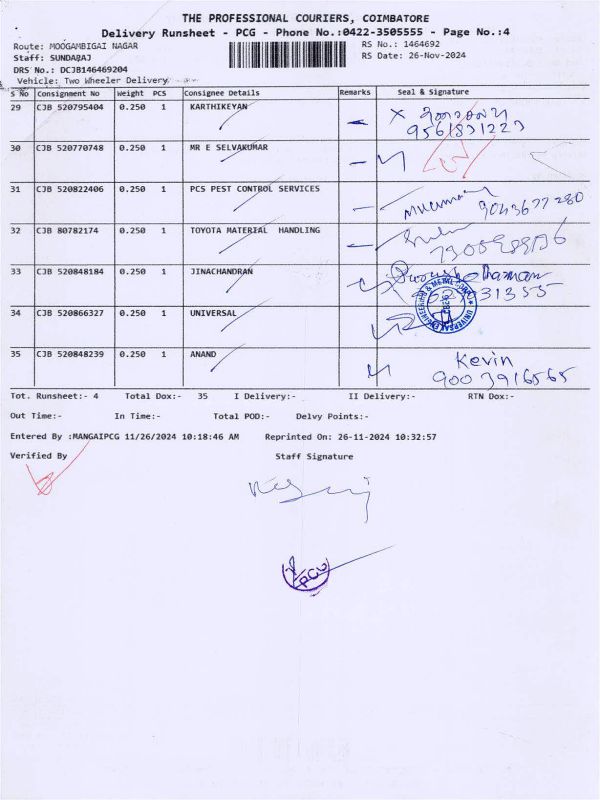 THE PROFESSIONAL COURIERS, COIMBATORE
Delivery Runsheet - PCG - Phone No.:0422-3505555 - Page No.:4
Route: MOOGAMBIGAI NAGAR RS No.: 1464692
Staff: SUNDARAJ RS Date: 26-Nov-2024
DRS No.: DCJB146469204
Vehicle: Two Wheeler Delivery
S No Consignment No Weight PCS Consignee Details Remarks Seal & Signature
29 CJB 520795404 0.250 1 KARTHIKEYAN
30 CJB 520770748 0.250 1 MR E SELVAKUMAR
31 CJB 520822406 0.250 1 PCS PEST CONTROL SERVICES
32 CJB 80782174 0.250 1 TOYOTA MATERIAL HANDLING
33 CJB 520848184 0.250 1 JINACHANDRAN
34 CJB 520866327 0.250 1 UNIVERSAL
35 CJB 520848239 0.250 1 ANAND Kevin
9003916565
Tot. Runsheet:- 4 Total Dox:- 35 I Delivery:- II Delivery:- RTN Dox:-
Out Time:- In Time:- Total POD:- Delvy Points:-
Entered By :MANGAIPCG 11/26/2024 10:18:46 AM Reprinted On: 26-11-2024 10:32:57
Verified By Staff Signature
PCG